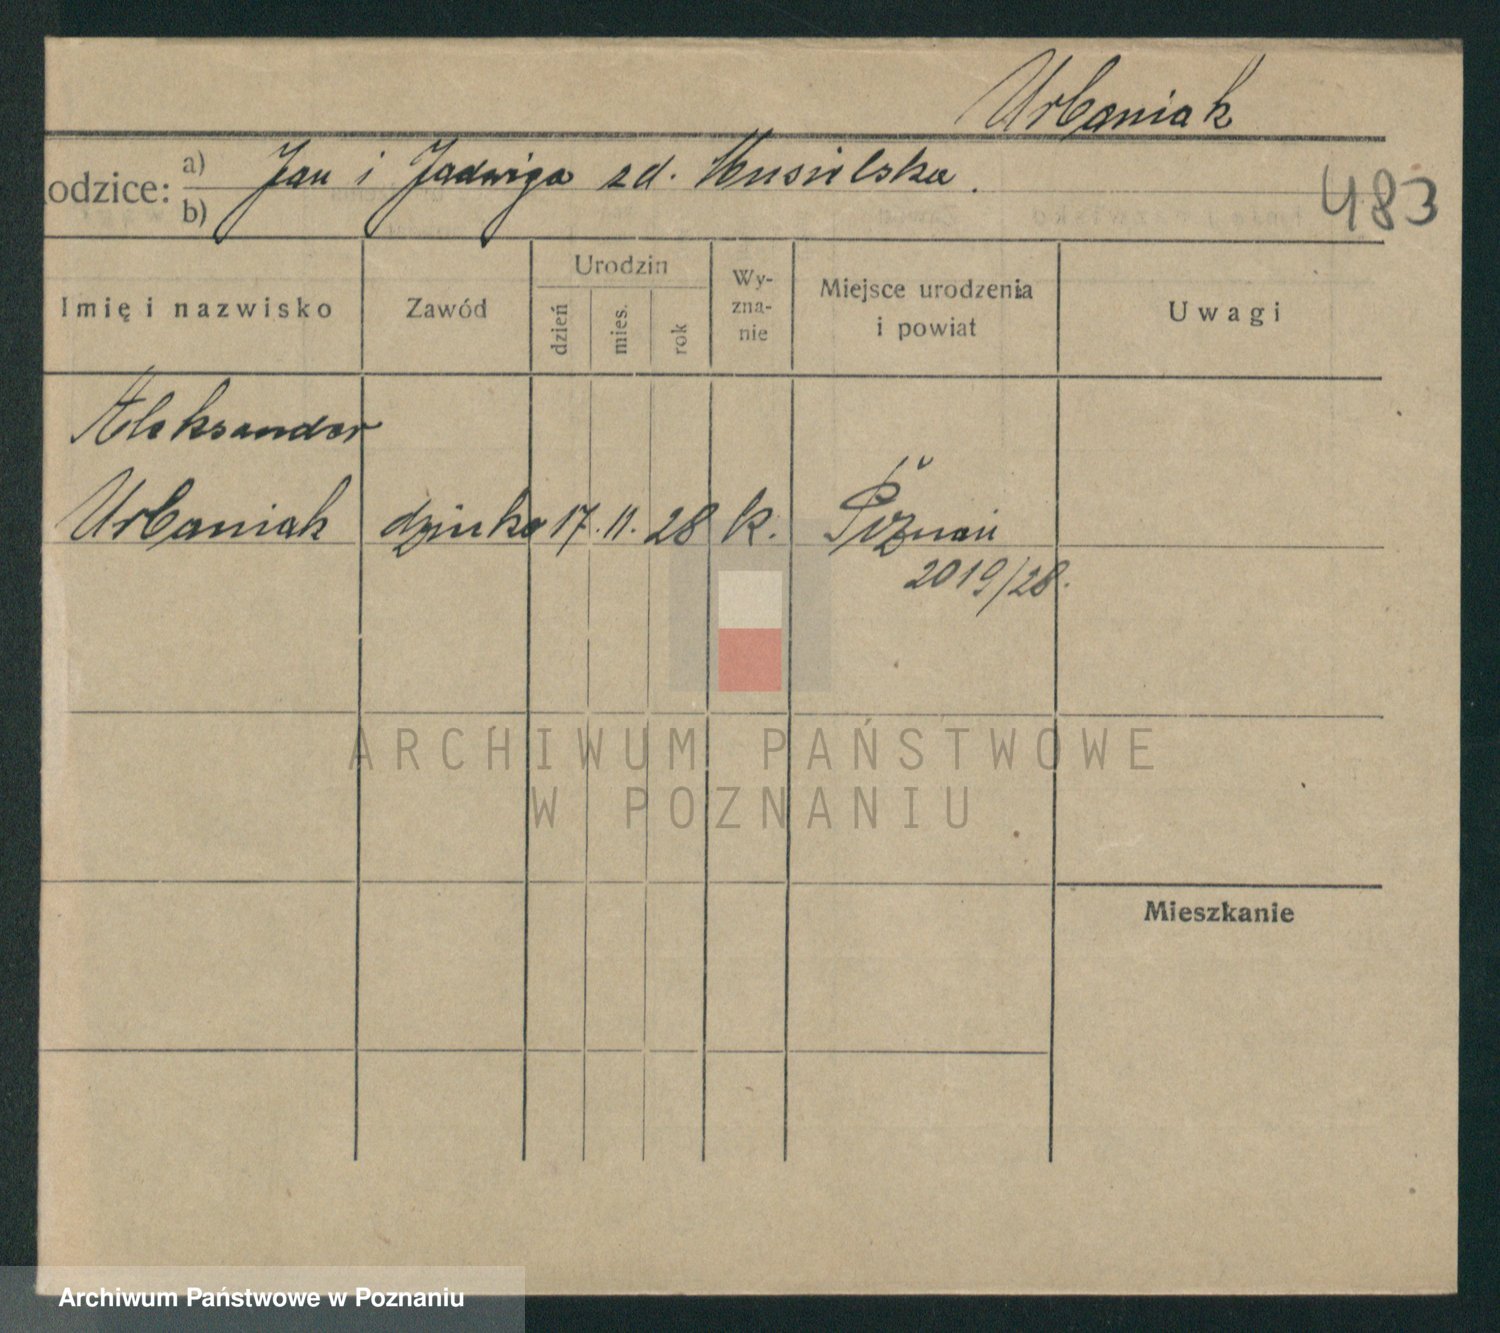 Urbaniak
odzice: a) Jan i Jadwiga zd. Musielska.
b)
483
Imię i nazwisko
Zawód
Urodzin
dzień
mies.
rok
Wy-
zna-
nie
Miejsce urodzenia
i powiat
Uwagi
Aleksander
Urbaniak 17. 11. 28 k. Poznań
2019/28.
Mieszkanie
ARCHIWUM PAŃSTWOWE
W POZNANIU
Archiwum Państwowe w Poznaniu